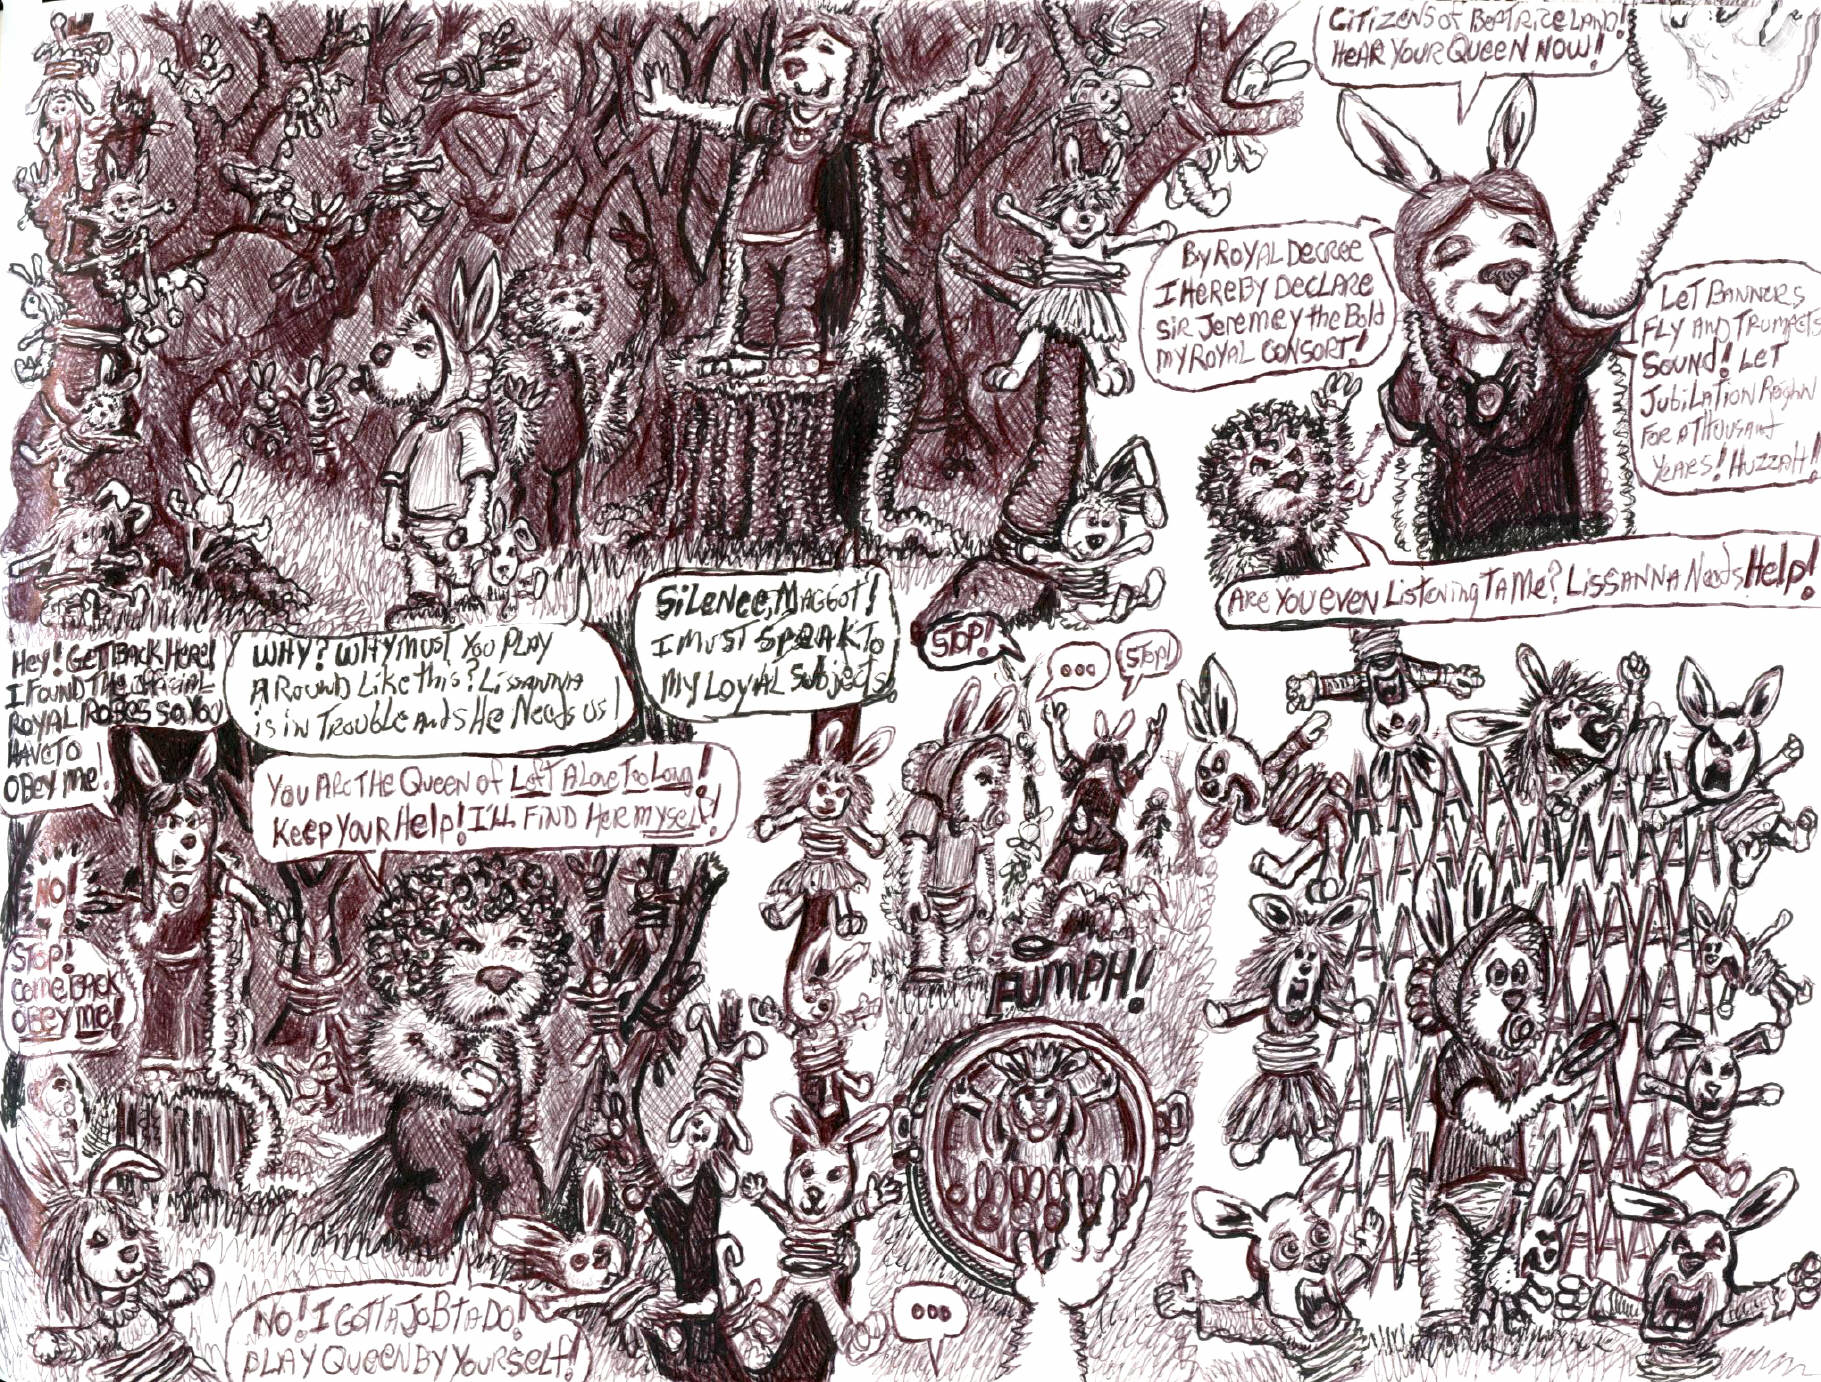 CITIZENS OF BEATRICELAND!
HEAR YOUR QUEEN NOW!
BY ROYAL DECREE
I HEREBY DECLARE
SIR JEREMEY THE BOLD
MY ROYAL CONSORT!
LET BANNERS
FLY AND TRUMPETS
SOUND! LET
JUBILATION REIGN
FOR A THOUSANT
YEARS! HUZZAH!
ARE YOU EVEN LISTENING TA ME? LISSANNA NEEDS HELP!
SILENCE, MAGGOT!
I MUST SPEAK TO
MY LOYAL SUBJECTS.
WHY? WHY MUST YOU PLAY
AROUND LIKE THIS? LISSANNA
IS IN TROUBLE AND SHE NEEDS US!
HEY! GET BACK HERE!
I FOUND THE OFFICIAL
ROYAL ROBES SO YOU
HAVE TO
OBEY ME!
YOU ARE THE QUEEN OF LEFT ALONE TOO LONG!
KEEP YOUR HELP! I'LL FIND HER MYSELF!
NO!
STOP!
COME BACK
OBEY ME!
NO! I GOTTA JOB TA DO!
PLAY QUEEN BY YOURSELF!
STOP!
...
STOP!
FUMPH!
...